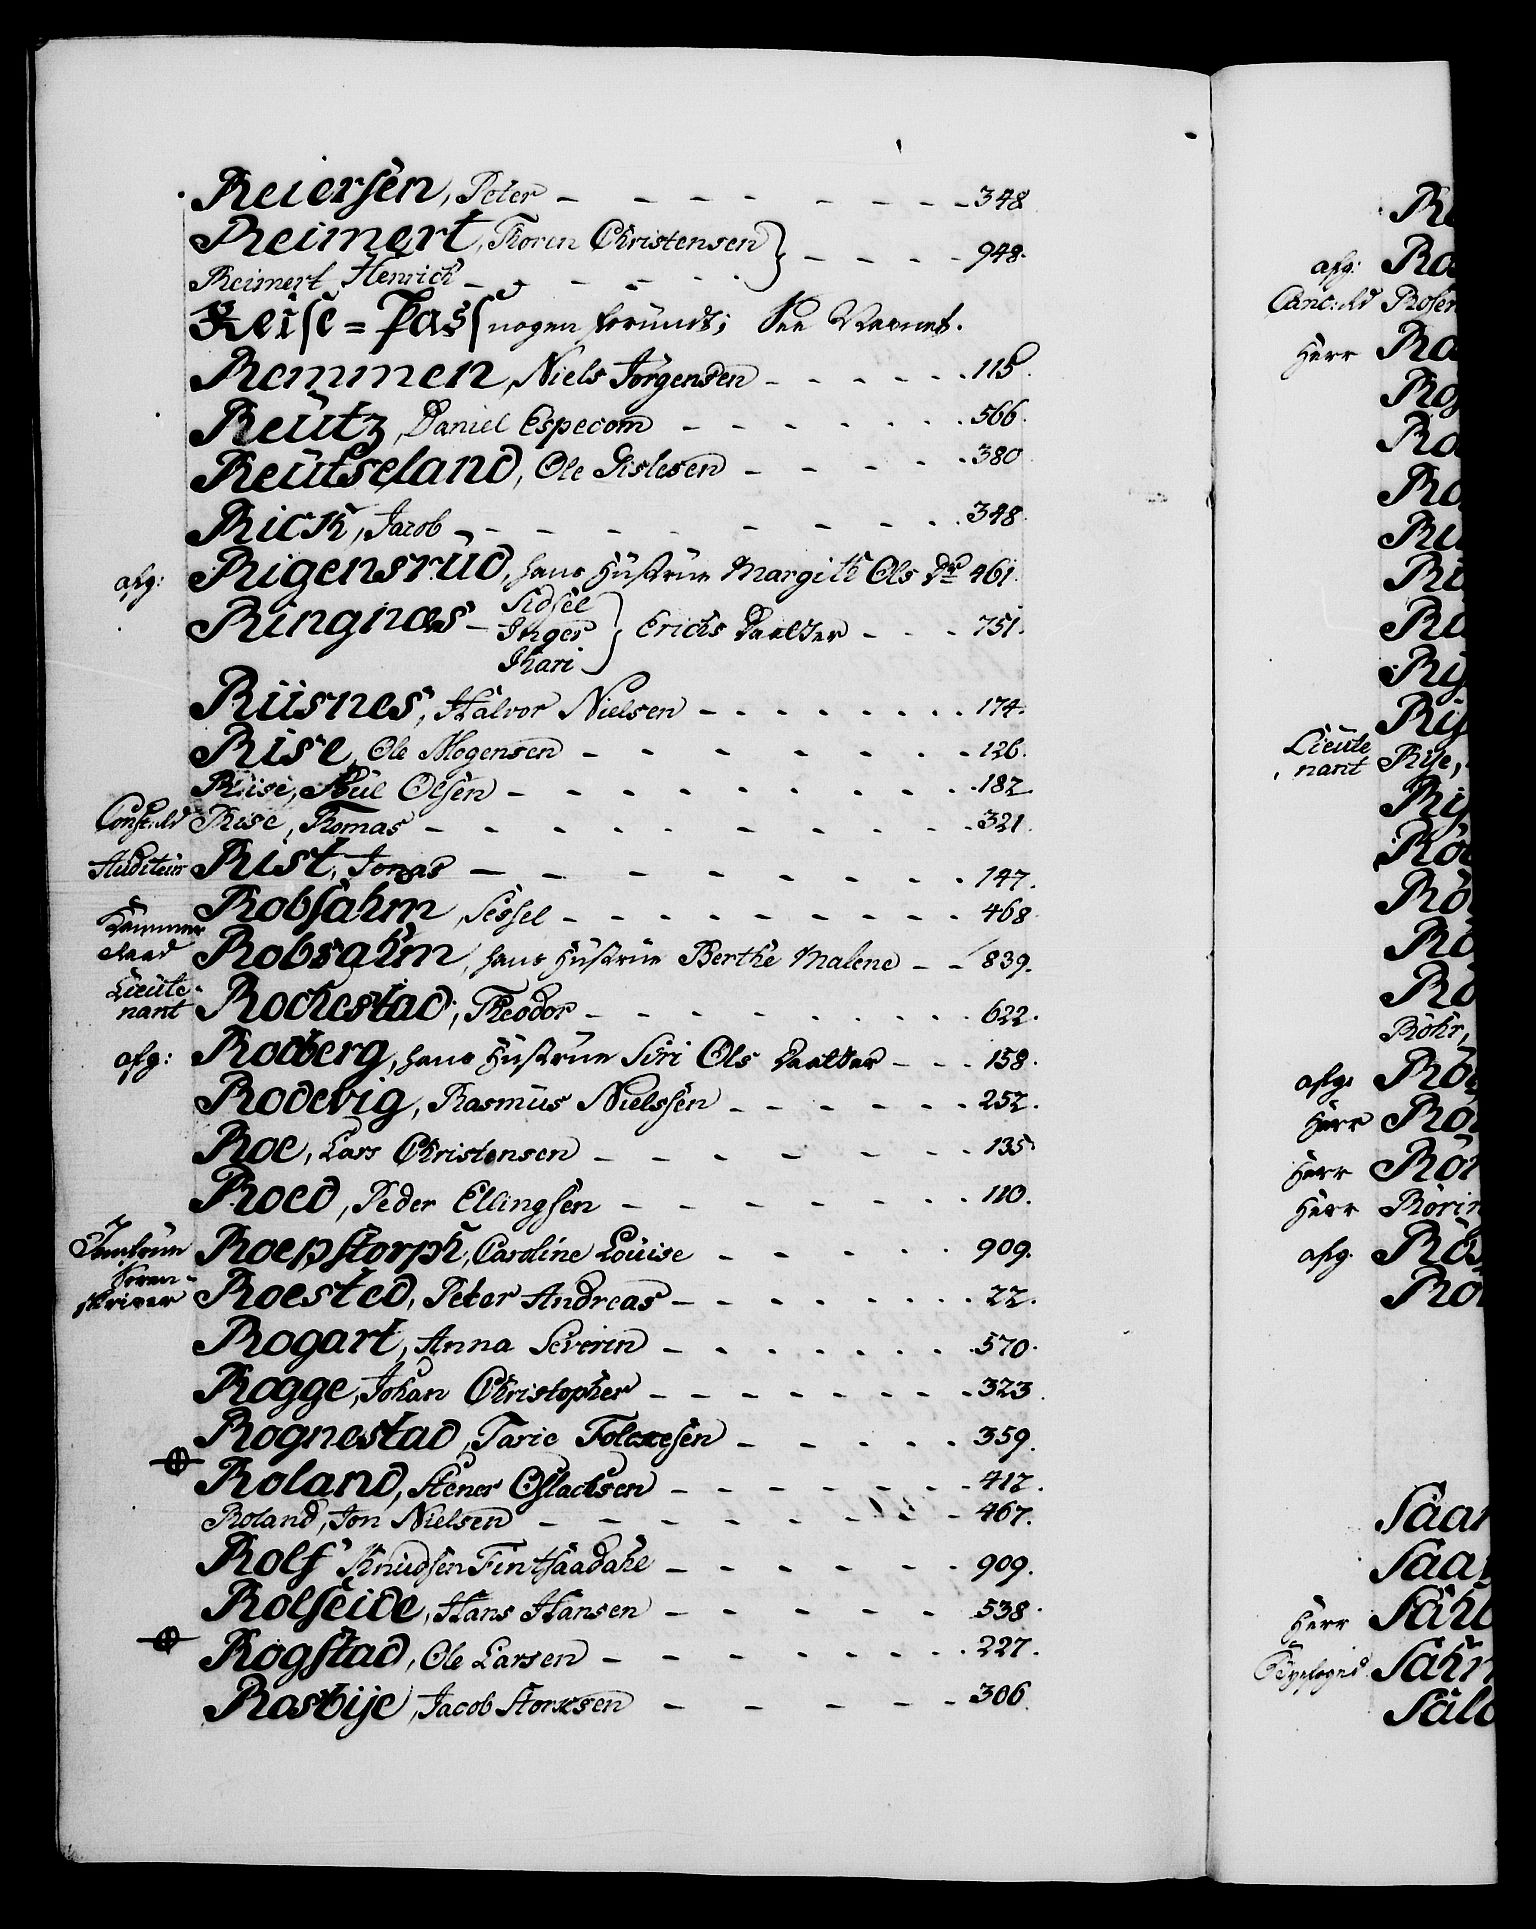 Reiersen, Peter - - - - - - - - 348
Reimert, Thoren Christensen } - - - - 948.
Reimert Henrich - - - - -
Reise=Pass nogen forundt; See Navnet.
Remmen, Niels Jörgensen - - - - - - 115.
Reutz, Daniel Especom - - - - - - - 566.
Reutseland, Ole Gislesen - - - - - - 380
Rick, Jacob - - - - - - - - - - 348.
afg: Rigensrud, hans Hustrue Margith Ols Dr 461.
Ringnæs - Sidsel
Inger } Erichs Daatter - - - 751.
Khari
Riisnes, Halvor Nielsen - - - - - - - - 174.
Rise, Ole Mogensen - - - - - - - - 126.
Riise, Poul Olsen - - - - - - - - - 182.
Conf:rd Rise, Thomas - - - - - - - - - 321.
Auditeur Rist, Jonas - - - - - - - - - 147.
Robsahm, Sessel - - - - - - - - - 468.
Kammer
Raad Robsahm, hans Hustrue Berthe Malene - - 839.
Lieute-
nant Rochestad, Theodor - - - - - - - - - 622.
afg: Rodberg, hans Hustrue Siri Ols Daatter - - - 158.
Rodevig, Rasmus Nielssen - - - - - - 252.
Roe, Lars Christensen - - - - - - - 135.
Roed, Peder Ellingsen - - - - - - - 110.
Jomfrue Roepstorph, Caroline Louise - - - - - 909.
Soren-
skriver Roested, Peter Andreas - - - - - - - - 22.
Rogart, Anna Severin - - - - - - - - 570.
Rogge, Johan Christopher - - - - - - - - 323.
Rognestad, Tarie Folcesen - - - - - - 359.
Roland, Stener Oslachsen - - - - - - - 412.
Roland, Jon Nielsen - - - - - - - - - 467.
Rolf Knudsen Fintsaadahl - - - - - - 909.
Rolseide, Hans Hansen - - - - - - 538.
Rogstad, Ole Larsen - - - - - - - - - 227.
Jacob - - - - - - 306.
afg:
Canc:rd
Herr
Lieute
nant Rise,
Röhr,
afg:
Herr
Herr
Herr
afg.
Herr